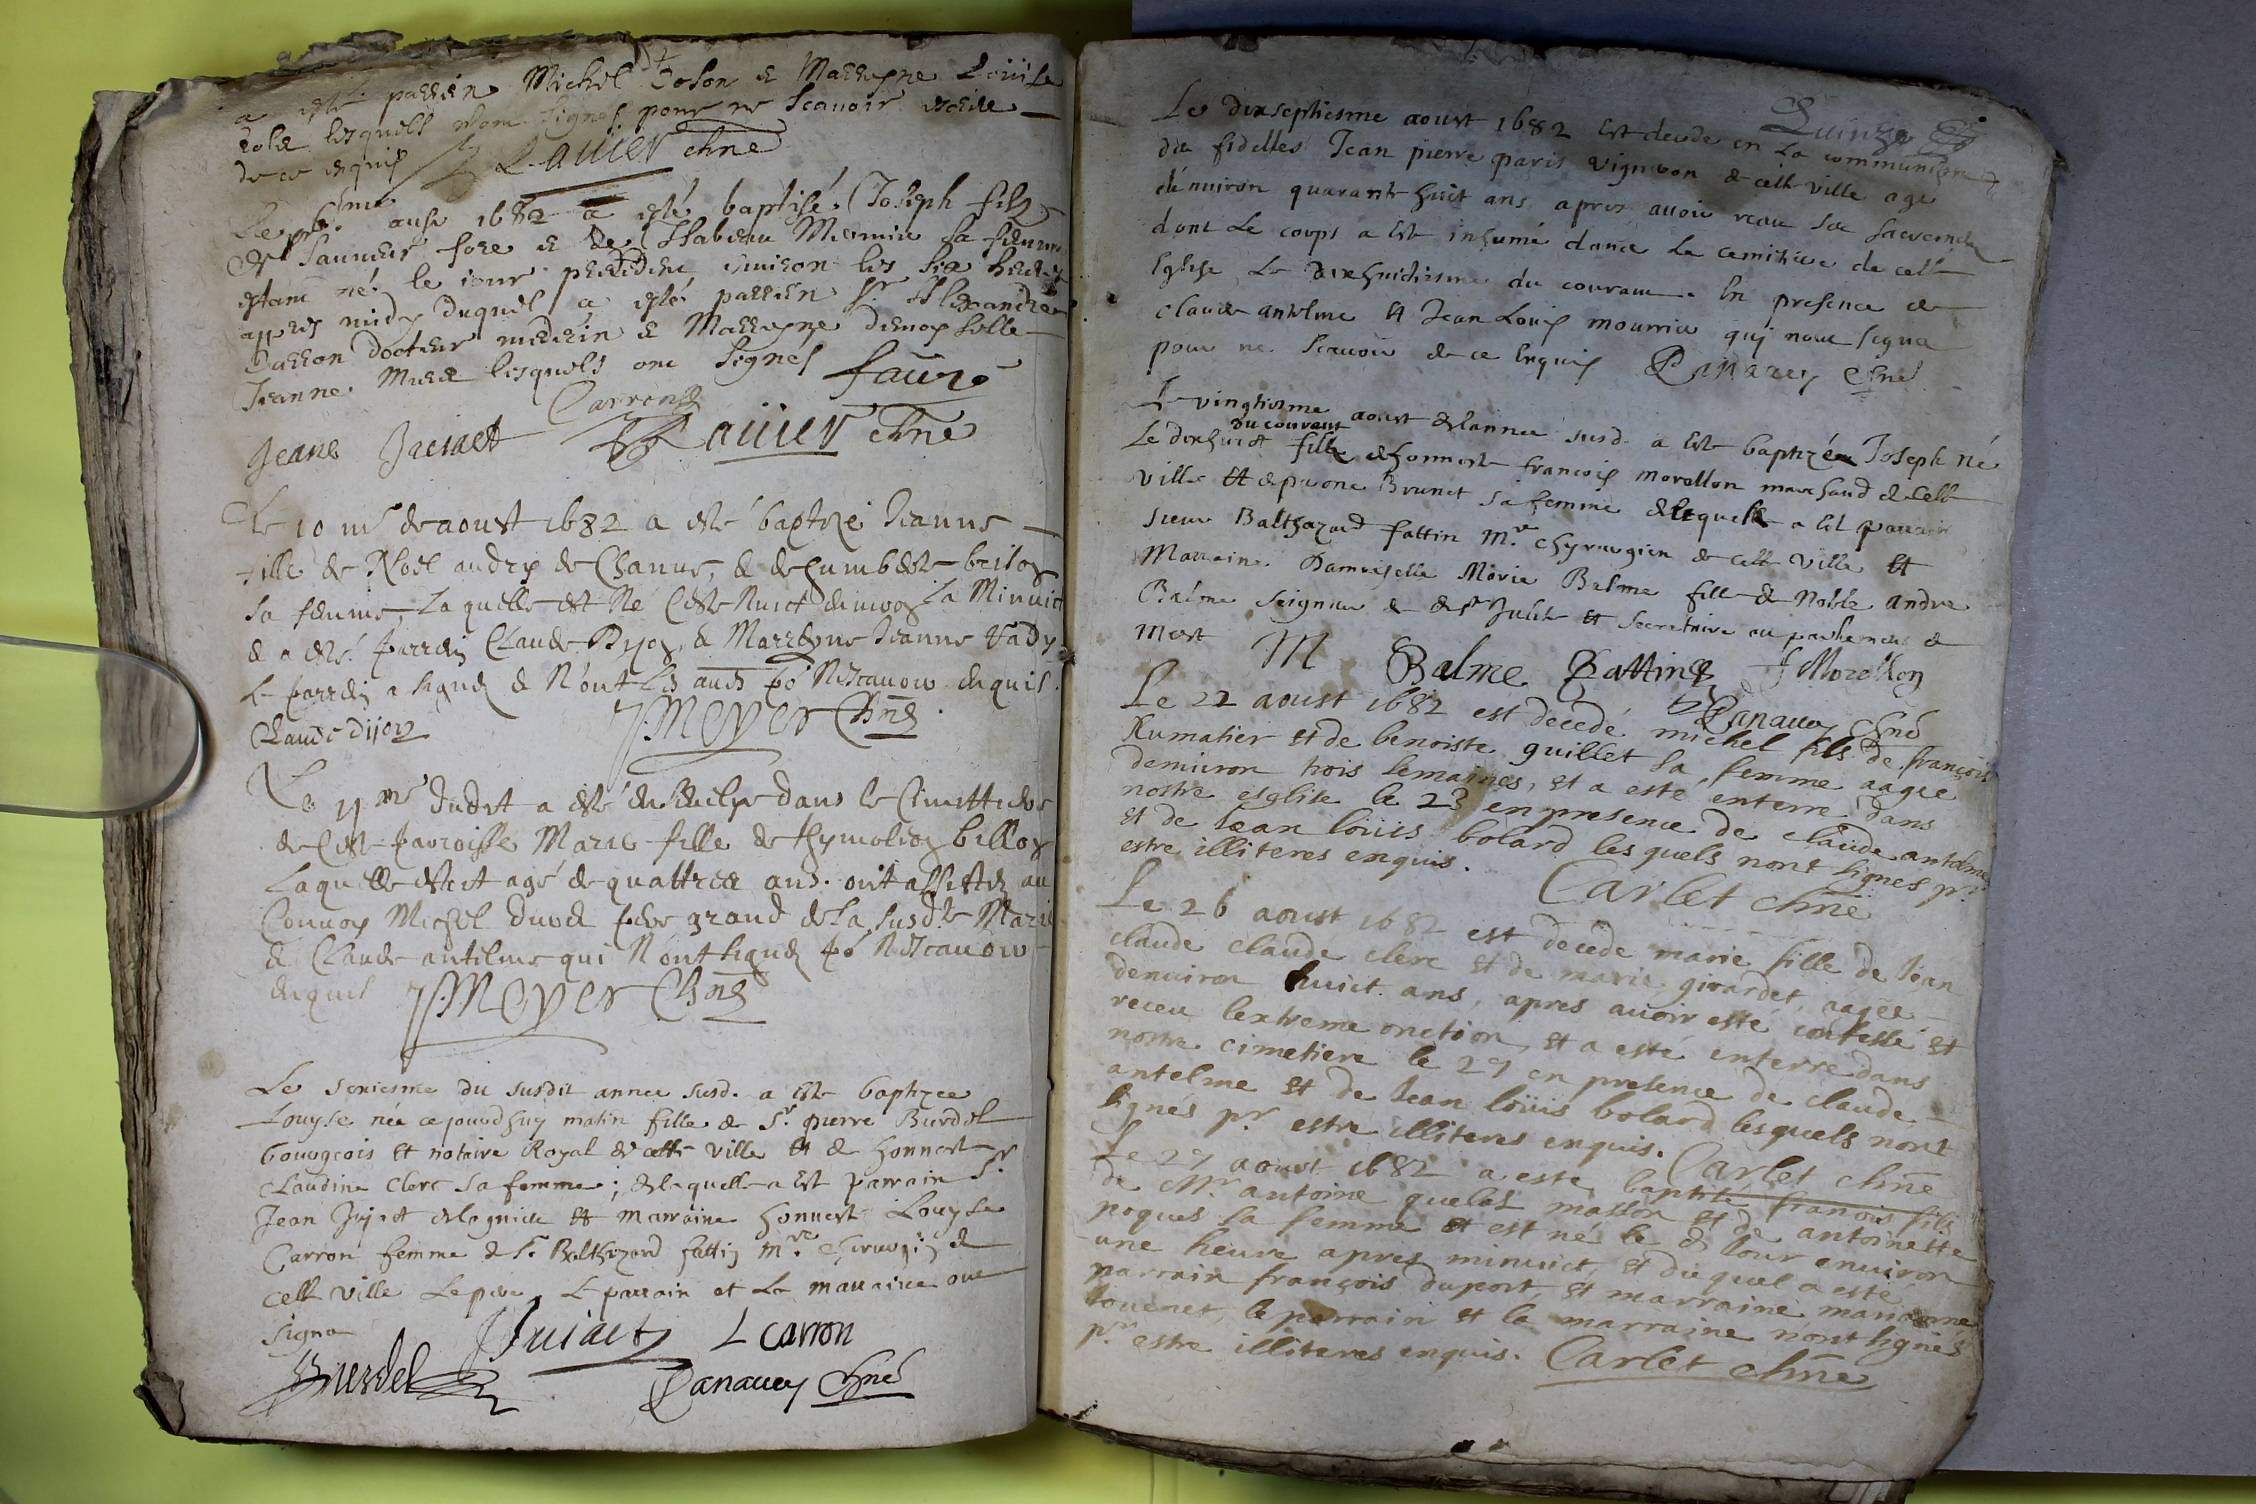 a esté parrin Michel Colon et Marrayne Loüise
lesquels n'ont signes pour ne scavoir escrire
de ce enquis Lauier chne
Le aust 1682 a esté baptisé Joseph filz
de Sauueur fore et de Isabeau Mermie sa femme
estant né le iour precedent enuiron les six heures
apres midy duquel a esté parrien Sr Alexandre
Carron docteur medecin et Marrayne demoyselle
Jeanne lesquels ont signes faure
Carron
Jeane Juiaet Lauier chne
Le 10 me de aoust 1682 a esté baptizé Jeanne
fille de Noel andry de Chanue, & de humberte brison
sa femme, Laquelle est Né Ceste Nuict enuiron La Minuict
& a esté parrein Claude Dijon, & Marreyne Jeanne
Le parrein a signé & N'ont les po Nescauoir enquis.
Claude dijon J. Meyer Chne.
Le 11 me dudit a esté enseuelye dans le Cimettiere
de Ceste parroisse Marie fille de Thymoleon billon
Laquelle estoit agé de quattree ans. ont assistez au
Conuoy Michel pere grand de La susdte Marie
& Claude antelme qui N'ont signé po Nescauoir
enquis J. Meyer Chne
Le seziesme du susdit annee susd. a esté baptizee
Louyse née ce jourdhuy matin fille de Sr. pierre Burdel
bourgeois et notaire Royal de cette ville et de honneste
claudine Clerc sa femme; de laquelle a est parrain Sr
Jean Jujat de lagnieu et marraine honneste Louyse
Carron femme de Sr Balthezard fattin Mre chirurgin de
cette ville Le pere, Le parrain et La marraine ont
signe
Burdel JJuiaet L carron
Panauey chne
Quinze
Le dixseptiesme aoust 1682 est decede en La communion
des fidelles Jean pierre paris vigneron de cette ville age
d'enuiron quarante huit ans apres auoir receu ses sacremens
dont Le corps a esté inhumé dans Le cemitiere de cette
Eglise Le dixhuictiesme du courant. En presence de
claude antelme et Jean Louis mourrieu quj n'ont signe
pour ne scauoir de ce Enquis Panauey Chne
Le vingtiesme aoust de lannee susd. a este baptizé Joseph Né
du courant
Le dixhuict fils de honneste francois morellon marchand de cette
ville et de pierone Brunet sa femme de lequelle a est parrain
sieur Balthazard fattin Mre chyrurgien de cette ville et
Marraine Damoiselle Marie Balme fille de Noble andre
Balme seigneur de de St Julin et secretaire au parlement de
Mest M Balme Fattin J Morellon
Panauey chne
Le 22 aoust 1682 est decedé michel fils de françois
Rumatier et de benoiste guillet sa femme aagé
denuiron trois semaines, et a esté enterre dans
nostre esglise le 23 en presence de claude antelme
et de Iean loüis bolard les quels nont signes pr.
estre illiteres enquis. Carlet chne
Le 26 aoust 1682 est decede marie fille de Iean
claude claude clerc et de marie girardet, aagee
denuiron huict ans, apres auoir esté confessé et
receu lextreme onction, et a esté enterre dans
nostre cimetiere le 27 en presence de claude
antelme et de Iean loüis bolard lesquels nont
signés pr. estre illiteres enquis. Carlet chne
Le 27 aoust 1682 a este baptisé francois fils
de Mr. antoine quelet masson et de antoinette
poques sa femme et est né le d. iour enuiron
une heure apres minuict, et duquel a esté
parrain françois duport, et marraine marianne
touenet, le parrain et la marraine n'ont signés
pr. estre illiteres enquis. Carlet chne